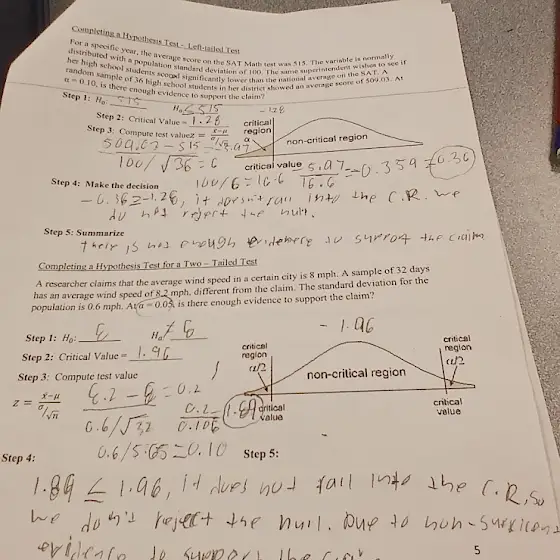 Completing a Hypothesis Test – Left-tailed Test
For a specific year, the average score on the SAT Math test was 515. The variable is normally
distributed with a population standard deviation of 100. The same superintendent wishes to see if
her high school students scored significantly lower than the national average on the SAT. A
random sample of 36 high school students in her district showed an average score of 509.03. At
α = 0.10, is there enough evidence to support the claim?
Step 1: H₀: 515 Hₐ: < 515 -1.28
Step 2: Critical Value = -1.28
critical region α
non-critical region
critical value
Step 3: Compute test value z = x-μ / σ/√n
509.03 - 515 = -5.97
100/√36 = 6
100/6 = 16.6 5.97/16.6 = -0.359 = 0.36
Step 4: Make the decision
-0.36 ≥ -1.28, it doesn't fall into the C.R. we
do not reject the null.
Step 5: Summarize
There is not enough evidence to support the claim
Completing a Hypothesis Test for a Two – Tailed Test
A researcher claims that the average wind speed in a certain city is 8 mph. A sample of 32 days
has an average wind speed of 8.2 mph, different from the claim. The standard deviation for the
population is 0.6 mph. At α = 0.05, is there enough evidence to support the claim?
Step 1: H₀: 8 Hₐ: ≠ 8 -1.96
Step 2: Critical Value = 1.96
critical region α/2
non-critical region
critical region α/2
critical value
critical value
Step 3: Compute test value
z = x-μ / σ/√n
8.2 - 8 = 0.2
0.6/√32 0.2/0.106 1.89
0.6/5.65 = 0.10
Step 4: Step 5:
1.89 ≤ 1.96, it does not fall into the C.R, so
we don't reject the null. Due to non-sufficient
evidence to support the
5